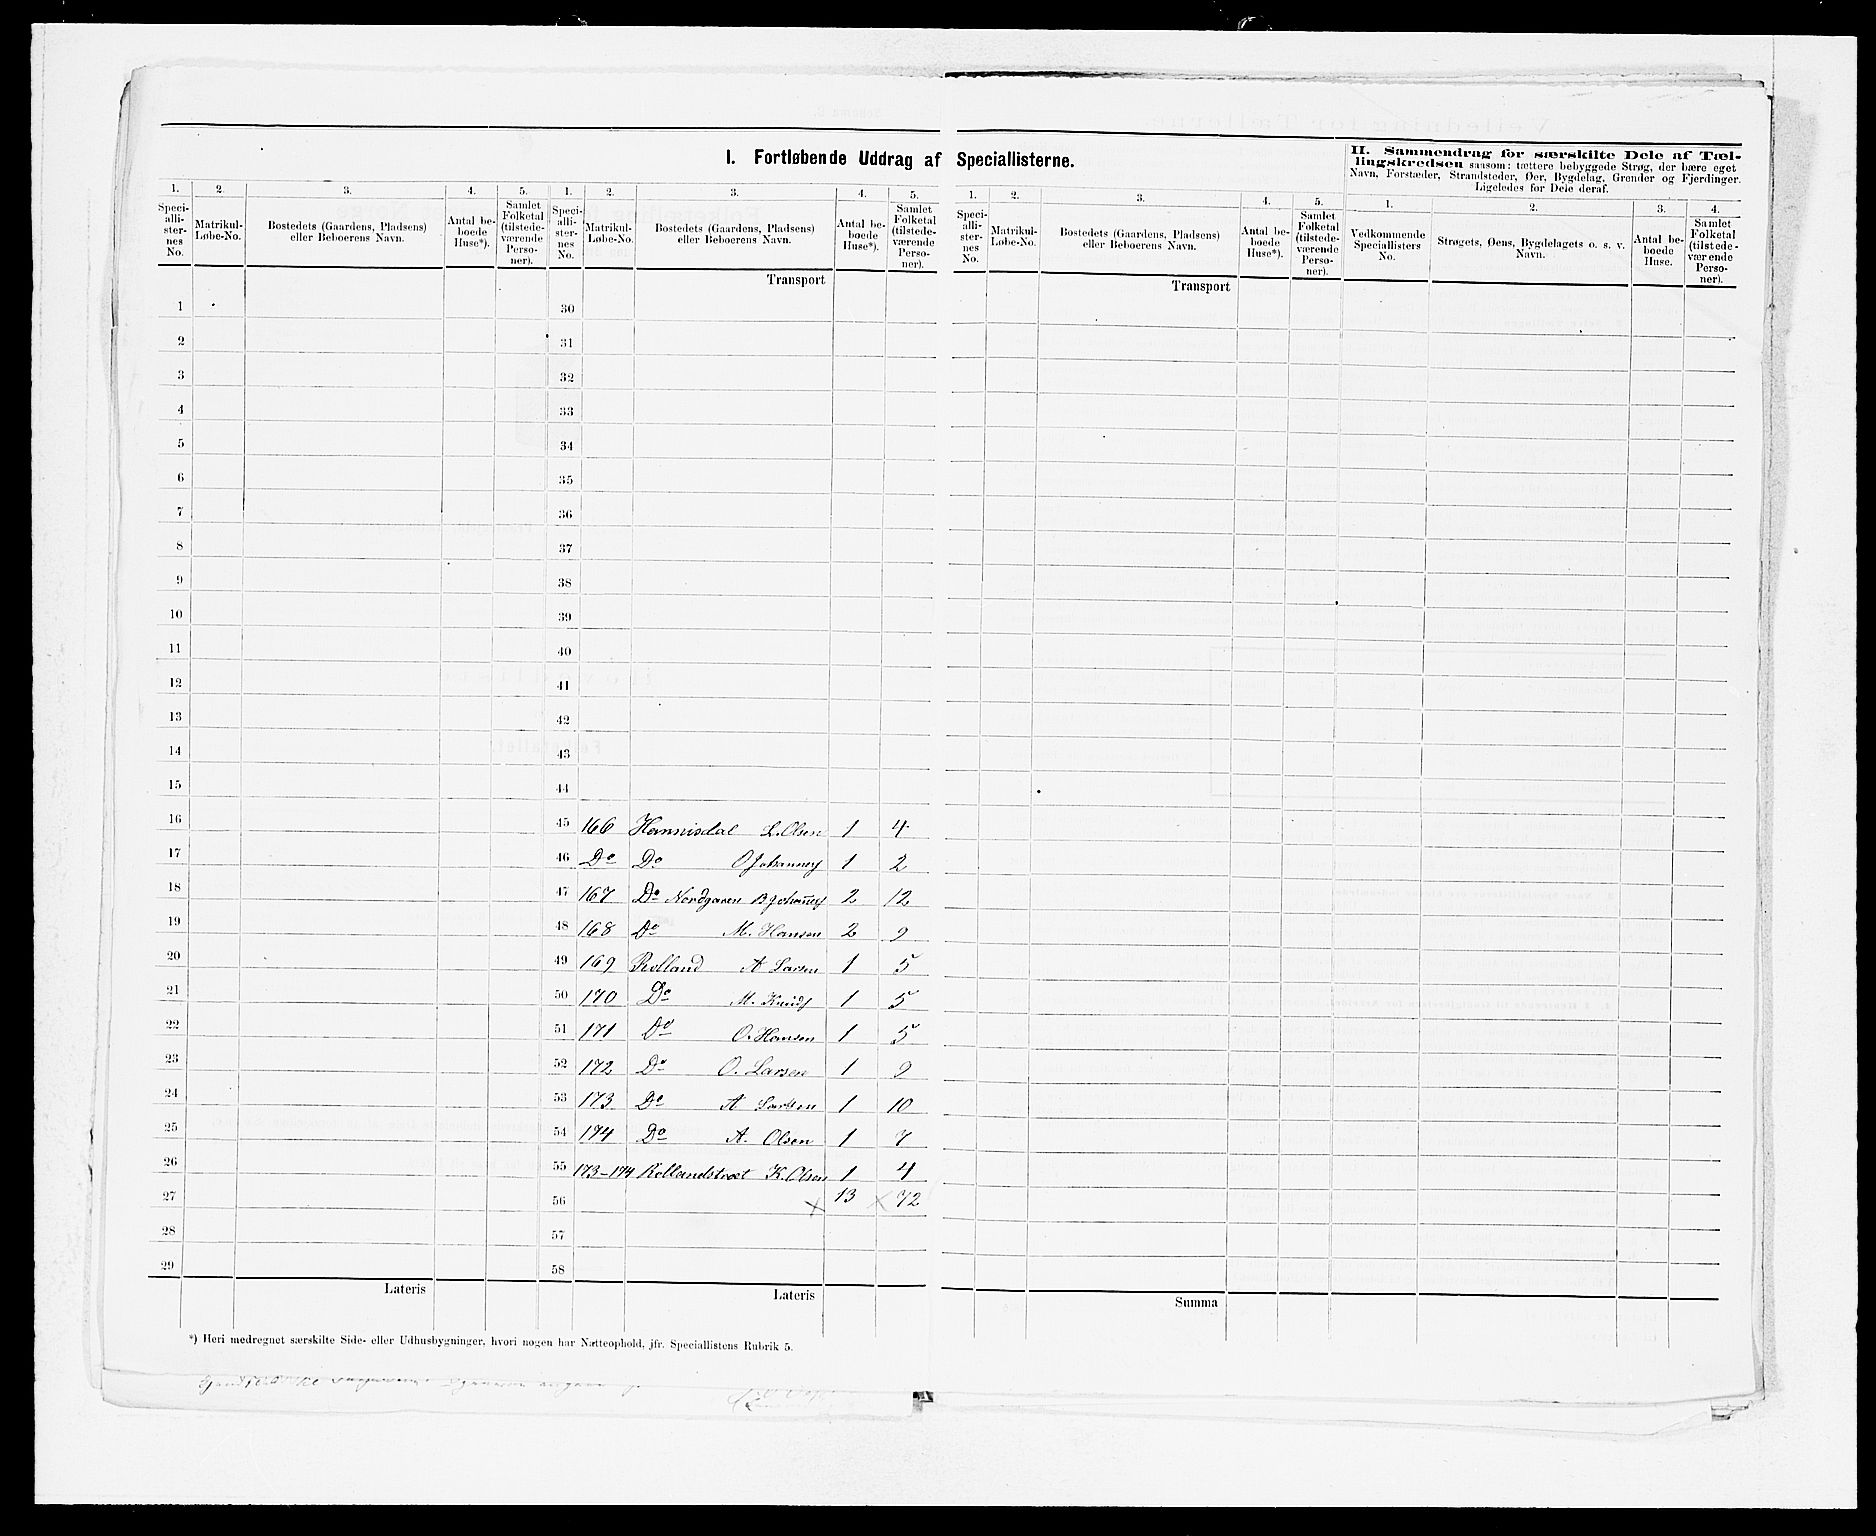 I. Fortløbende Uddrag af Speciallisterne.
II. Sammendrag for særskilte Dele af Tæl-
lingskredsen saasom: tættere bebyggede Strøg, der bære eget
Navn, Forstæder, Strandsteder, Øer, Bygdelag, Grender og Fjerdinger.
Ligeledes for Dele deraf.
1. 2. 3. 4. 5. 1. 2. 3. 4. 5. 1. 2. 3. 4. 5. 1. 2. 3. 4.
Speci-
alli-
ster-
nes
No.
Matrikul-
Løbe-No.
Bostedets (Gaardens, Pladsens)
eller Beboerens Navn.
Antal be-
boede
Huse*).
Samlet
Folketal
(tilstede-
værende
Perso-
ner).
Speci-
alli-
ster-
nes
No.
Matrikul-
Løbe-No.
Bostedets (Gaardens, Pladsens)
eller Beboerens Navn.
Antal be-
boede
Huse*).
Samlet
Folketal
(tilstede-
værende
Perso-
ner).
Speci-
alli-
ster-
nes
No.
Matrikul-
Løbe-No.
Bostedets (Gaardens, Pladsens)
eller Beboerens Navn.
Antal be-
boede
Huse*).
Samlet
Folketal
(tilstede-
værende
Perso-
ner).
Vedkommende
Speciallisters
No.
Strøgets, Øens, Bygdelagets o. s. v.
Navn.
Antal be-
boede
Huse.
Samlet
Folketal
(tilstede-
værende
Perso-
ner).
Transport Transport
1 30
2 31
3 32
4 33
5 34
6 35
7 36
8 37
9 38
10 39
11 40
12 41
13 42
14 43
15 44
16 45 166 Hannisdal L. Olsen 1 4
17 46 Do Do O Johannes 1 2
18 47 167 Do Nordgaren B Johannes 2 12
19 48 168 Do M. Hansen 2 9
20 49 169 Rolland A Larsen 1 5
21 50 170 Do M. Knuds 1 5
22 51 171 Do O. Hansen 1 5
23 52 172 Do O. Larsen 1 9
24 53 173 Do A 1 10
25 54 174 Do A. Olsen 1 7
26 55 173-174 Rollandstræt K. Olsen 1 4
27 56 × 13 × 72
28 57
29 58
Lateris Lateris Summa
*) Heri medregnet særskilte Side- eller Udhusbygninger, hvori nogen har Natteophold, jfr. Speciallistens Rubrik 5.